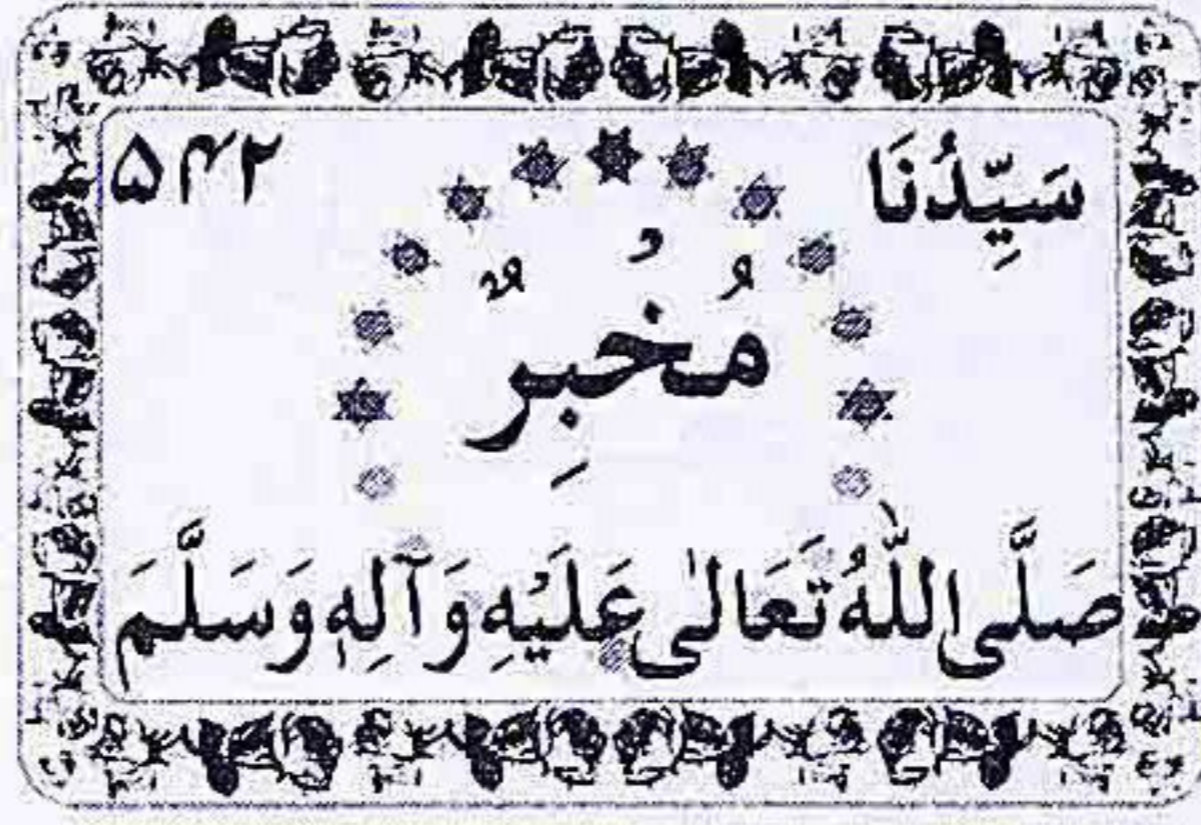 سَيِّدُنَا ۵۴۲
مُخْبِرٌ
صَلَّى اللّٰهُ تَعَالٰى عَلَيْهِ وَآلِهٖ وَسَلَّمَ